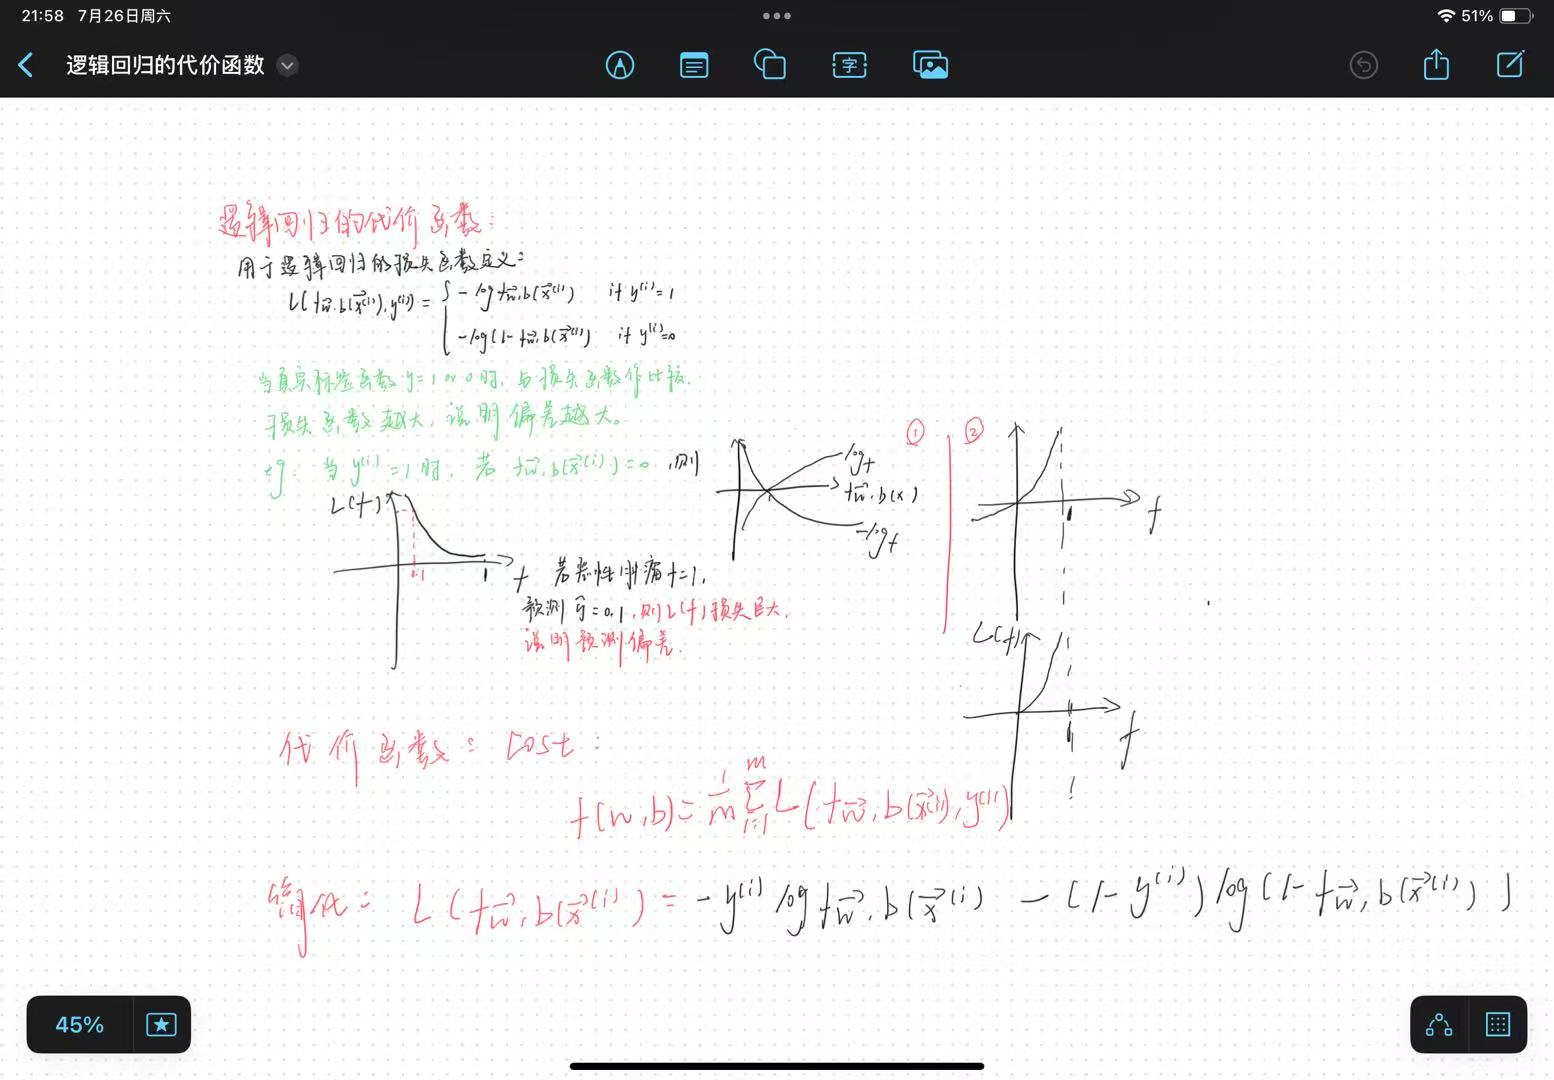 21:58 7月26日周六
51%
逻辑回归的代价函数
字
逻辑回归的代价函数:
用于逻辑回归的损失函数定义:
L(f w⃗,b(x⃗⁽ⁱ⁾),y⁽ⁱ⁾) = { -log f w⃗,b(x⃗⁽ⁱ⁾) if y⁽ⁱ⁾=1
-log(1- f w⃗,b(x⃗⁽ⁱ⁾) if y⁽ⁱ⁾=0
当真实标签函数 y=1 or 0时, 与损失函数作比较.
损失函数越大, 说明偏差越大。
eg: 当 y⁽ⁱ⁾=1时, 若 f w⃗,b(x⃗⁽ⁱ⁾)=0, 则
L(f)
0.1
1
f
log f
f w⃗,b(x)
-log f
① ②
f
1
若恶性肿瘤f=1,
预测ŷ=0.1, 则L(f)损失巨大,
说明预测偏差.
L(f)
1
f
代价函数: cost:
f(w,b)= 1/m Σ i=1 m L(f w⃗,b(x⃗⁽ⁱ⁾),y⁽ⁱ⁾)
简化: L(f w⃗,b(x⃗⁽ⁱ⁾) = -y⁽ⁱ⁾ log f w⃗,b(x⃗⁽ⁱ⁾) - (1-y⁽ⁱ⁾) log(1- f w⃗,b(x⃗⁽ⁱ⁾))
45%